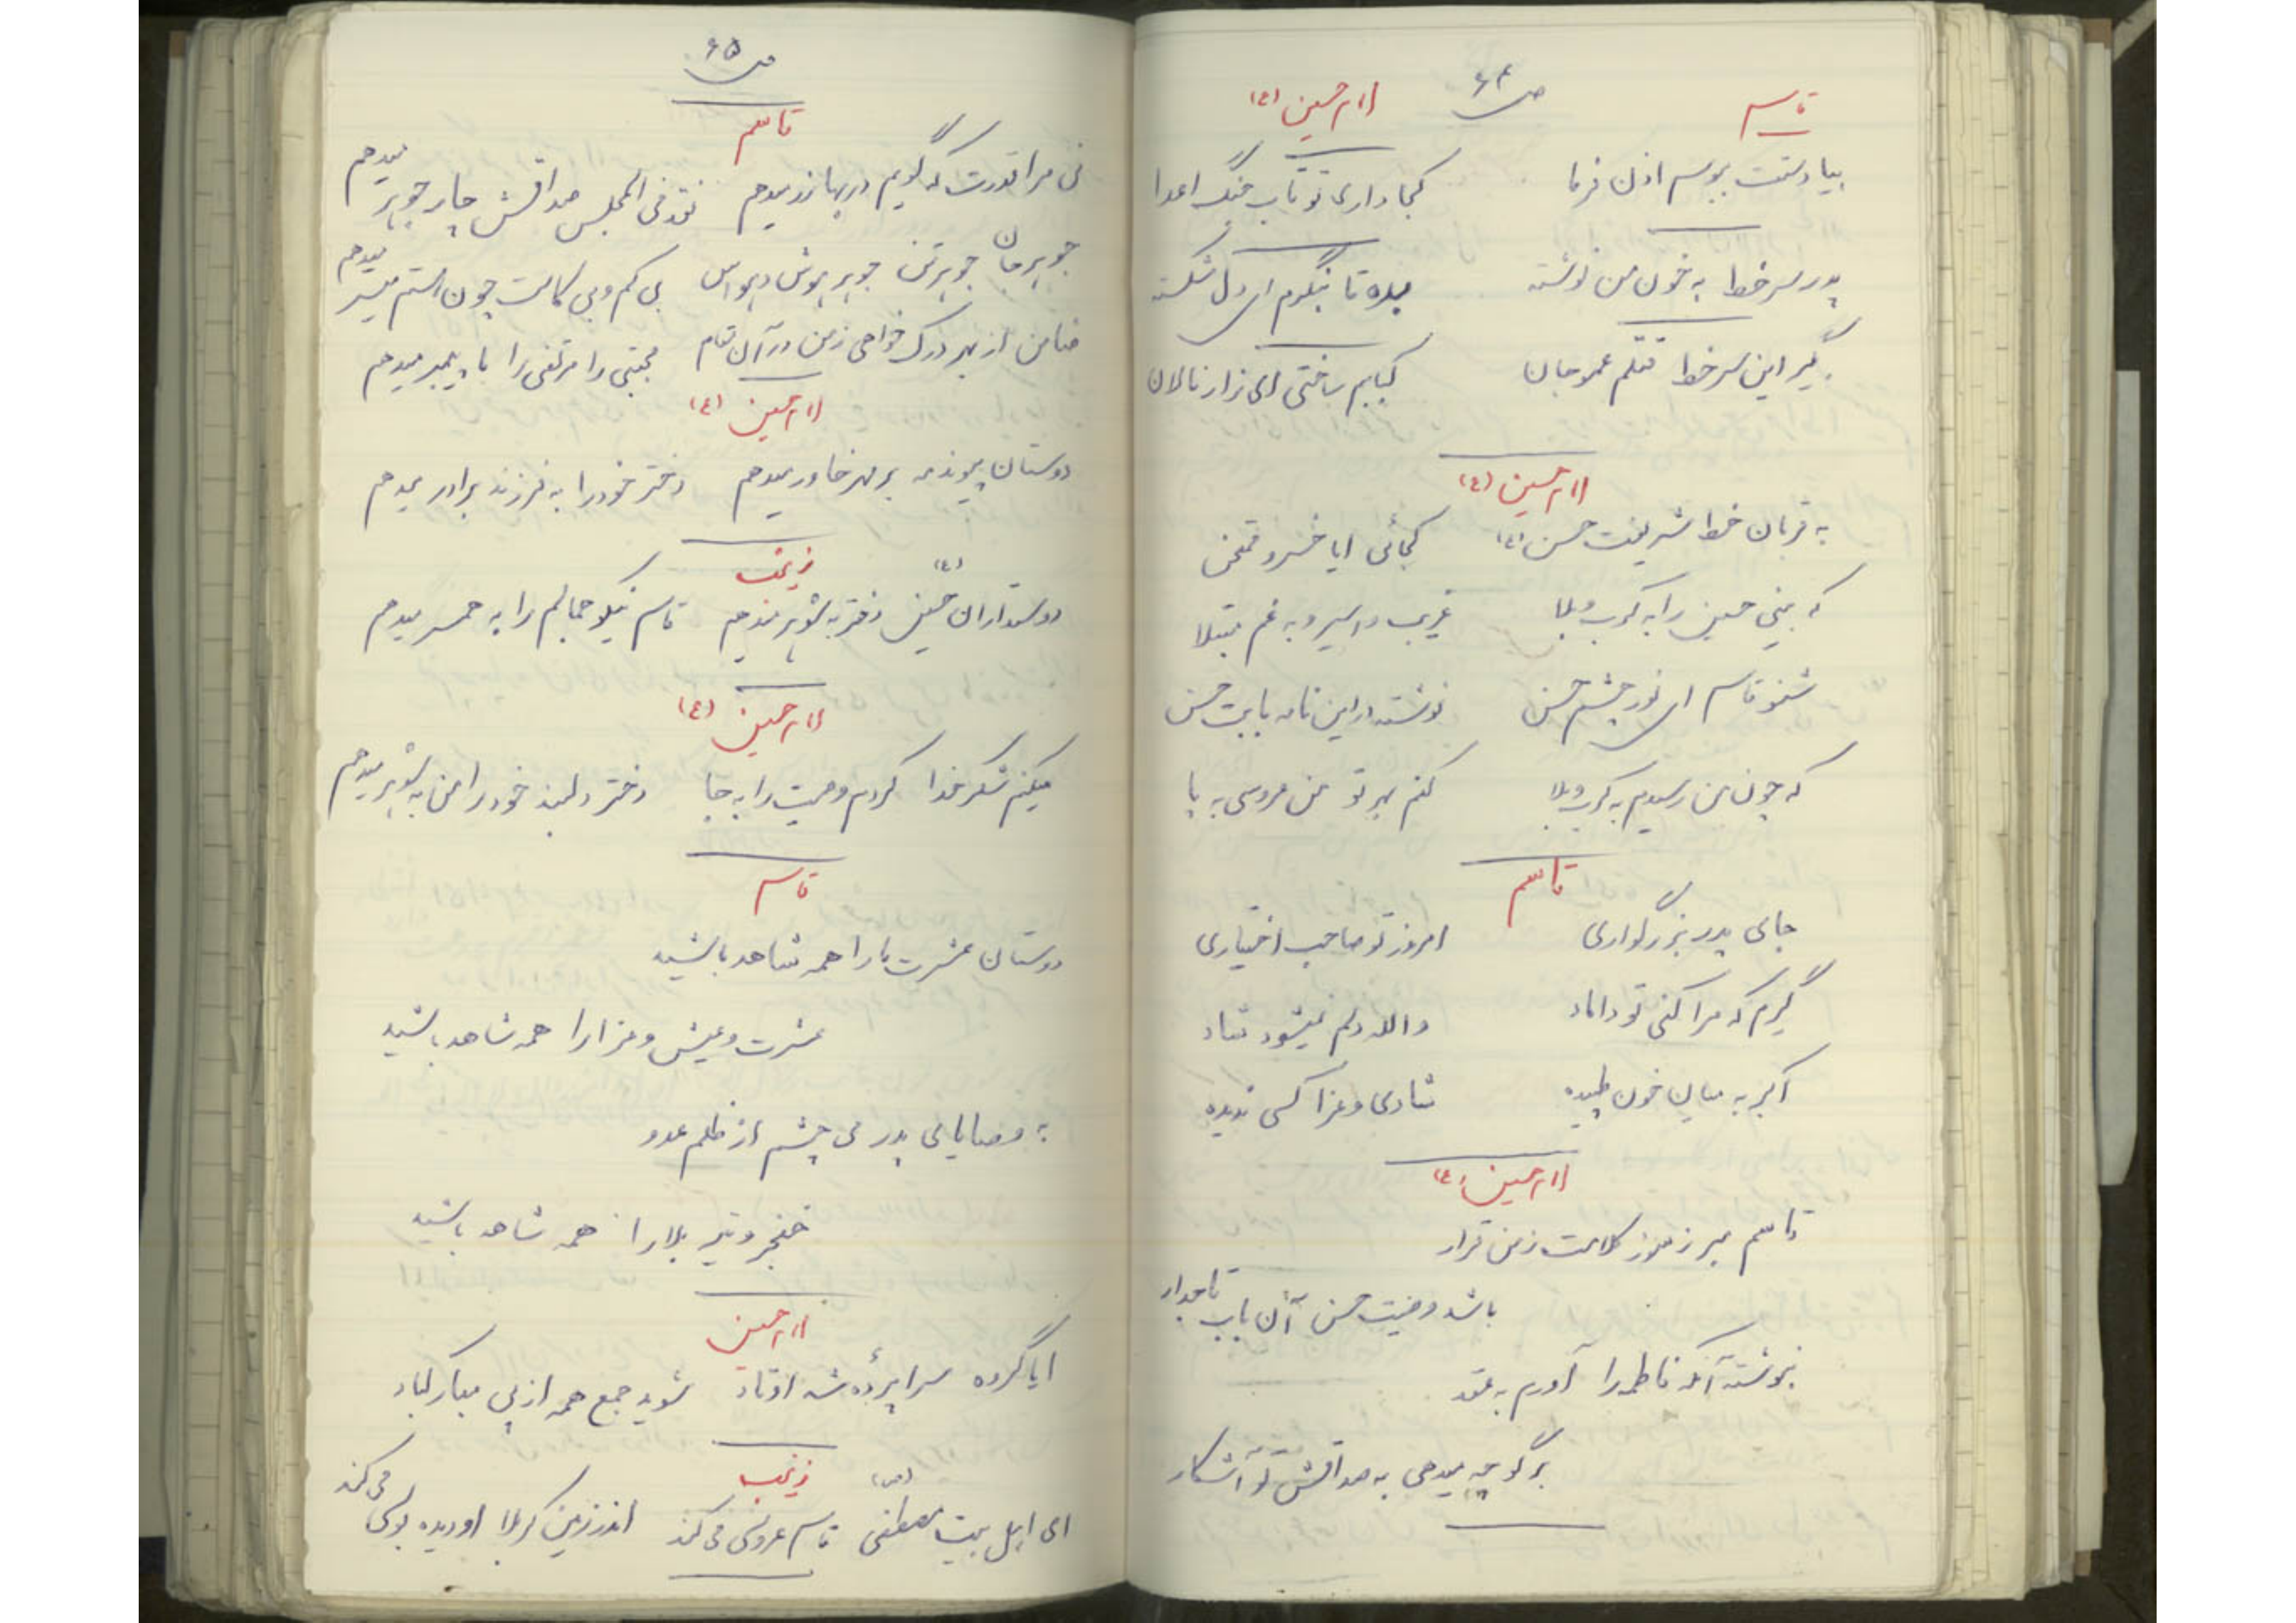 ص ۶۴
قاسم
امام حسین (ع)
بیا دستت ببوسم اذن فرما کجا داری تو تاب جنگ اعدا
پدر سرخط به خون من نوشته بده تا بنگرم ای دل شکسته
بگیر این سرخط قتلم عمو جان کبابم ساختی ای زار نالان
امام حسین (ع)
به قربان خط شریفت حسن (ع) کجائی ایا خسرو ممتحن
که بینی حسین را به کرب و بلا غریب و اسیر و به غم مبتلا
شنو قاسم ای نور چشم حسن نوشته در این نامه بابت حسن
که چون من رسیدم به کرب و بلا کنم بهر تو من عروسی به پا
قاسم
جای پدر بزرگواری امروز تو صاحب اختیاری
گیرم که مرا کنی تو داماد والله دلم نمیشود شاد
اکبر به میان خون طپیده شادی و عزا کسی ندیده
امام حسین (ع)
قاسم مبر ز سوز کلامت ز من قرار
باشد وصیت حسن آن باب تاجدار
بنوشته آنکه فاطمه را آورم به عقد
برگو چه میدهی به صداقش تو آشکار
ص ۶۵
قاسم
نی مرا قدرت که گویم در بها زر میدهم نقد فی المجلس صداقش چار جوهر میدهم
جوهر جان جوهر تن جوهر هوش و حواس بی کم و بی کاست چون هستم میسر میدهم
ضامن از بهر درک خواهی ز من در آن تمام مجتبی و مرتضی را با پیمبر میدهم
امام حسین (ع)
دوستان پیوند مه بر مهر خاور میدهم دختر خود را به فرزند برادر میدهم
زینب
دوستداران حسین (ع) دختر به شوهر میدهم قاسم نیکو جمالم را به همسر میدهم
امام حسین (ع)
میکنم شکر خدا کردم وصیت را به جا دختر دلبند خود را من به شوهر میدهم
قاسم
دوستان عشرت ما را همه شاهد باشید
عشرت و عیش و عزا را همه شاهد باشید
به وصایای پدر می چشم از ظلم عدو
خنجر و تیر بلا را همه شاهد باشید
امام حسین
ایا گروه سراپردهٔ شه اوتاد شوید جمع همه از پی مبارکباد
زینب
ای اهل بیت مصطفی (ص) قاسم عروسی می کند اندر زمین کربلا او دیده بوسی می کند